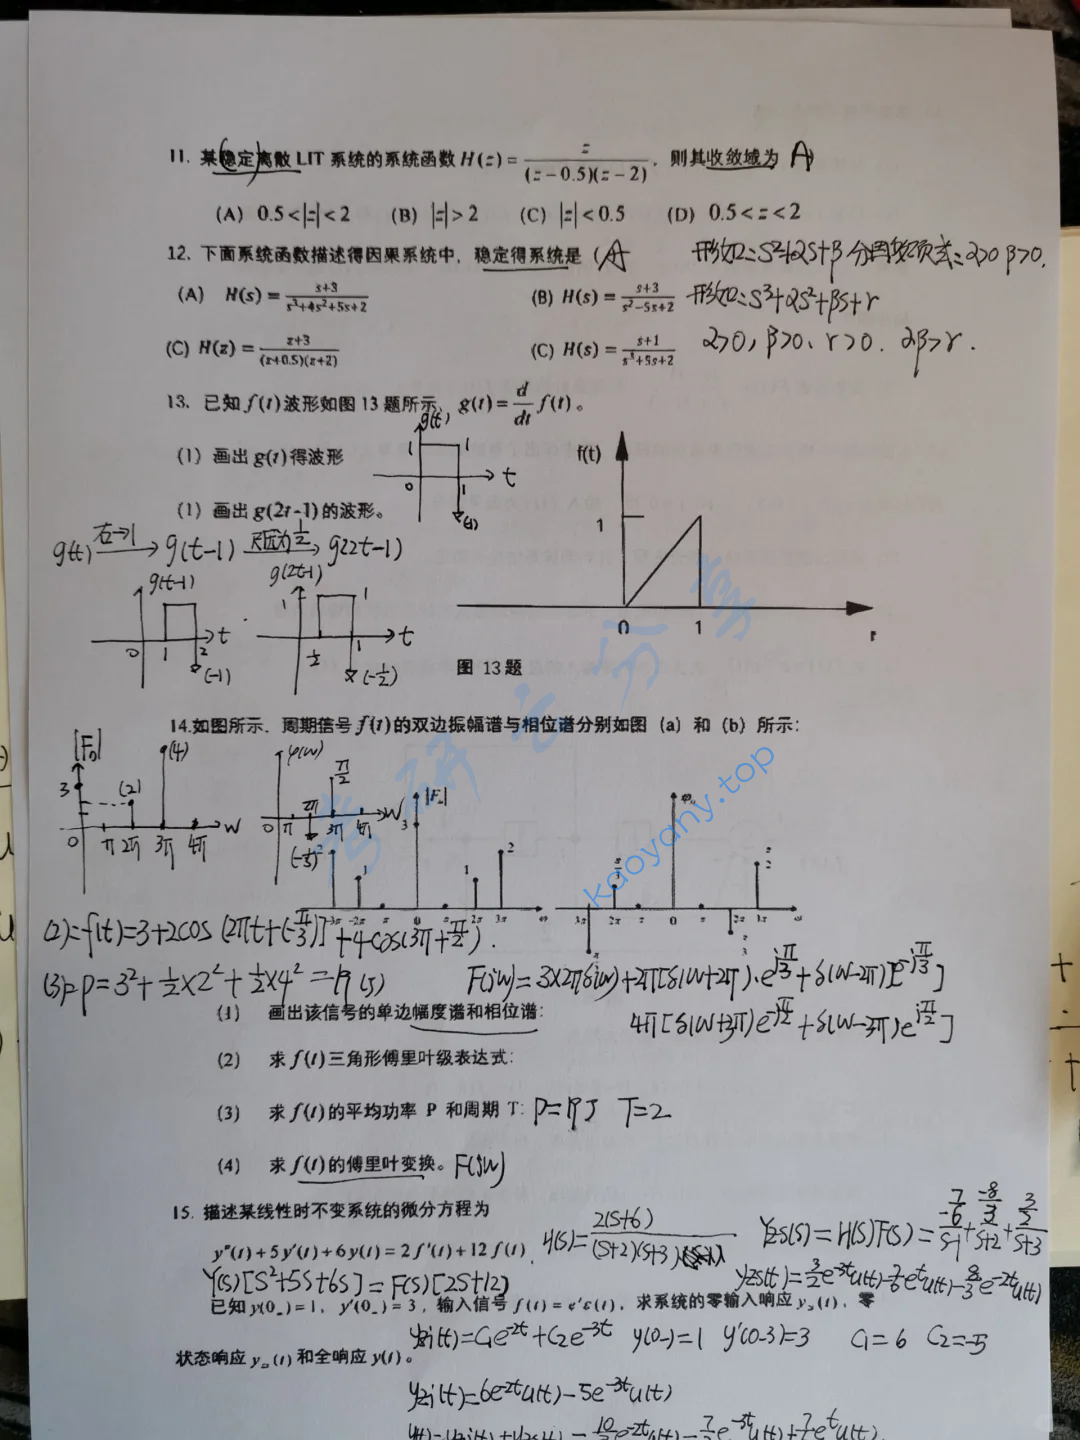 11. 某(稳定)离散 LIT 系统的系统函数 H(z) = z / ((z−0.5)(z−2)), 则其收敛域为 A
(A) 0.5<|z|<2 (B) |z|>2 (C) |z|<0.5 (D) 0.5<z<2
12. 下面系统函数描述得因果系统中, 稳定得系统是 (A
形如=S²+αS+β 分母 α>0 β>0.
(A) H(s) = (s+3)/(s³+4s²+5s+2)
(B) H(s) = (s+3)/(s²−5s+2)
形如=S³+αS²+βS+r
(C) H(z) = (z+3)/((z+0.5)(z+2))
(C) H(s) = (s+1)/(s³+5s+2)
α>0, β>0, r>0. αβ>r.
13. 已知 f(t) 波形如图 13 题所示, g(t) = d/dt f(t)。
(1) 画出 g(t) 得波形
g(t) 1 1 0 1 t (1)
f(t) 1 0 1
(1) 画出 g(2t−1) 的波形。
g(t) 右→1 g(t−1) 1/2 g(2t−1)
g(t−1) 0 1 2 t (−1)
g(2t−1) 1 1/2 1 t (−1/2)
图 13题
14.如图所示, 周期信号 f(t) 的双边振幅谱与相位谱分别如图 (a) 和 (b) 所示:
|Fn| 3 (2) (4) 0 π 2π 3π 4π w
φ(w) π/2 0 π 2π 3π 4π w
|Fn| 3 2 1 1 2 −3π −2π π 0 π 2π 3π ω
φn 3π 2π π 0 π 2π 3π ω
kaoyany.top
(2)=f(t)=3+2cos[2πt+(−π/3)]+4cos(3π+π/2).
(3)=P=3²+1/2×2²+1/2×4²=19(J)
F(jw)=3×2πδ(w)+2π[δ(w+2π)·e^{jπ/3}+δ(w−2π)e^{−jπ/3}]
4π[δ(w+3π)e^{−jπ/2}+δ(w−3π)e^{jπ/2}]
(1) 画出该信号的单边幅度谱和相位谱:
(2) 求 f(t) 三角形傅里叶级表达式:
(3) 求 f(t) 的平均功率 P 和周期 T: P=19J T=2
(4) 求 f(t) 的傅里叶变换。F(jw)
15. 描述某线性时不变系统的微分方程为
y″(t)+5y′(t)+6y(t)=2f′(t)+12f(t)
H(s)=2(s+6)/((s+2)(s+3))
Yzs(s)=H(s)F(s)=(7/6)/(s−1)+(−8/3)/(s+2)+(3/2)/(s+3)
Y(s)[S²+5S+6S]=F(s)[2S+12]
yzs(t)=3/2e^{−3t}u(t)−7/6e^{t}u(t)−8/3e^{−2t}u(t)
已知 y(0₋)=1, y′(0₋)=3, 输入信号 f(t)=e^{t}ε(t), 求系统的零输入响应 y(t), 零
yzi(t)=C₁e^{−2t}+C₂e^{−3t} y(0−)=1 y′(0−3)=3 C₁=6 C₂=−5
状态响应 y(t) 和全响应 y(t)。
yzi(t)=6e^{−2t}u(t)−5e^{−3t}u(t)